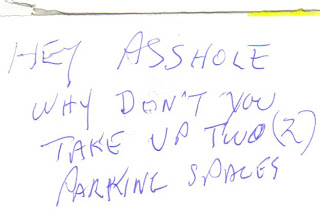 HEY ASSHOLE
WHY DON'T YOU
TAKE UP TWO (2)
PARKING SPACES